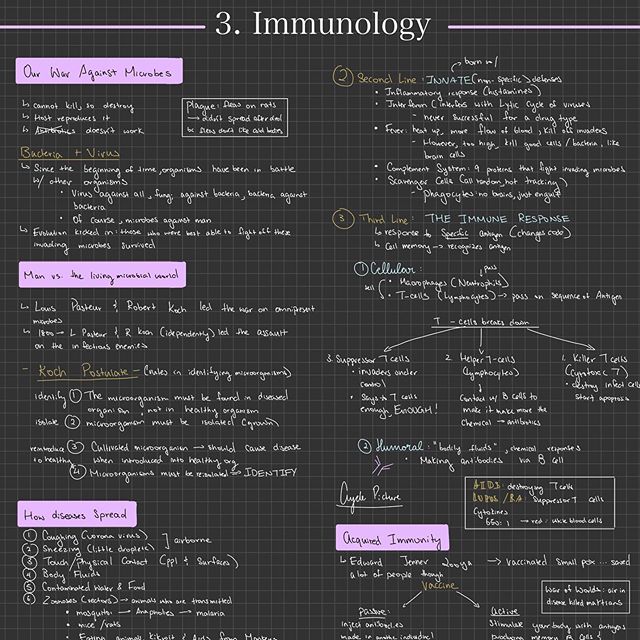 3. Immunology
Our War Against Microbes
↳ cannot kill, so destroy
↳ Host reproduces it
↳ Antibiotics doesn't work
Plague: fleas on rats
→ didn't spread after died
bc fleas don't like dead bodies
Bacteria + Virus
↳ Since the beginning of time, organisms have been in battle
w/ other organisms
• Virus against all, fungi against bacteria, bacteria against
bacteria
• Of course, microbes against man
↳ Evolution kicked in: those who were best able to fight off these
invading microbes survived
Man vs. the living microbial world
↳ Louis Pasteur & Robert Koch led the war on omnipresent
microbes
↳ 1800 → L Pasteur & R Koch (idependently) led the assault
on the infectious enemies
- Koch Postulate - (rules in identifying microorganisms)
identify ① The microorganism must be found in diseased
organism, not in healthy organism
isolate ② microorganism must be isolated (grown)
reintroduce ③ Cultivated microorganism → should cause disease
to healthy when introduced into healthy org
④ Microorganisms must be reisolated → IDENTIFY
How diseases Spread
① Coughing (corona virus)
② Sneezing (little droplets)
] airborne
③ Touch/Physical Contact (ppl & Surfaces)
④ Body Fluids
⑤ Contaminated Water & Food
⑥ Zoonoses (vectors) → animals who are transmitted
• mosquitos → Anopheles → malaria
• mice/rats
• Eating animals
born w/
② Second Line: INNATE (non-specific) defenses
• Inflammatory response (histamines)
• Interferon (interfers with Lytic Cycle of viruses
- never successful for a drug type
• Fever: heat up, more flow of blood, kill off invaders
- However, too high, kill good cells/bacteria, like
brain cells
• Complement System: 9 proteins that fight invading microbes
• Scavenger Cells (all random, not tracking)
- Phagocytes: no brains, just engulf
③ Third Line: THE IMMUNE RESPONSE
↳ response to specific antigen (changes code)
↳ Cell memory → recognizes antigen
① Cellular:
pass
cell
• Macrophages (Neutrophils)
• T-cells (Lymphocytes) → pass on sequence of Antigen
T-cells breaks down
3. Suppressor T cells
• invaders under
control
• Says to T cells
enough, ENOUGH!
2. Helper T-cells
(Lymphocytes)
• Contact w/ B cells to
make it make more the
chemical → antibiotics
1. Killer T cells
(Cytotoxic T)
• destroy infect cells
start apoptosis
② Humoral: "bodily fluids", chemical responses
• Making antibodies via B cell
Cycle Picture
AIDS: destroying T cells
LUPUS/RA: Suppressor T cells
Cytokines
650:1 → red: white blood cells
Acquired Immunity
↳ Edward Jenner 200 ya → vaccinated small pox ... saved
a lot of people though
Vaccine
War of Worlds: air in
disease killed martians
Passive:
inject antibodies
made in another individual
active
Stimulate your body with antigens
producing memory B cells &